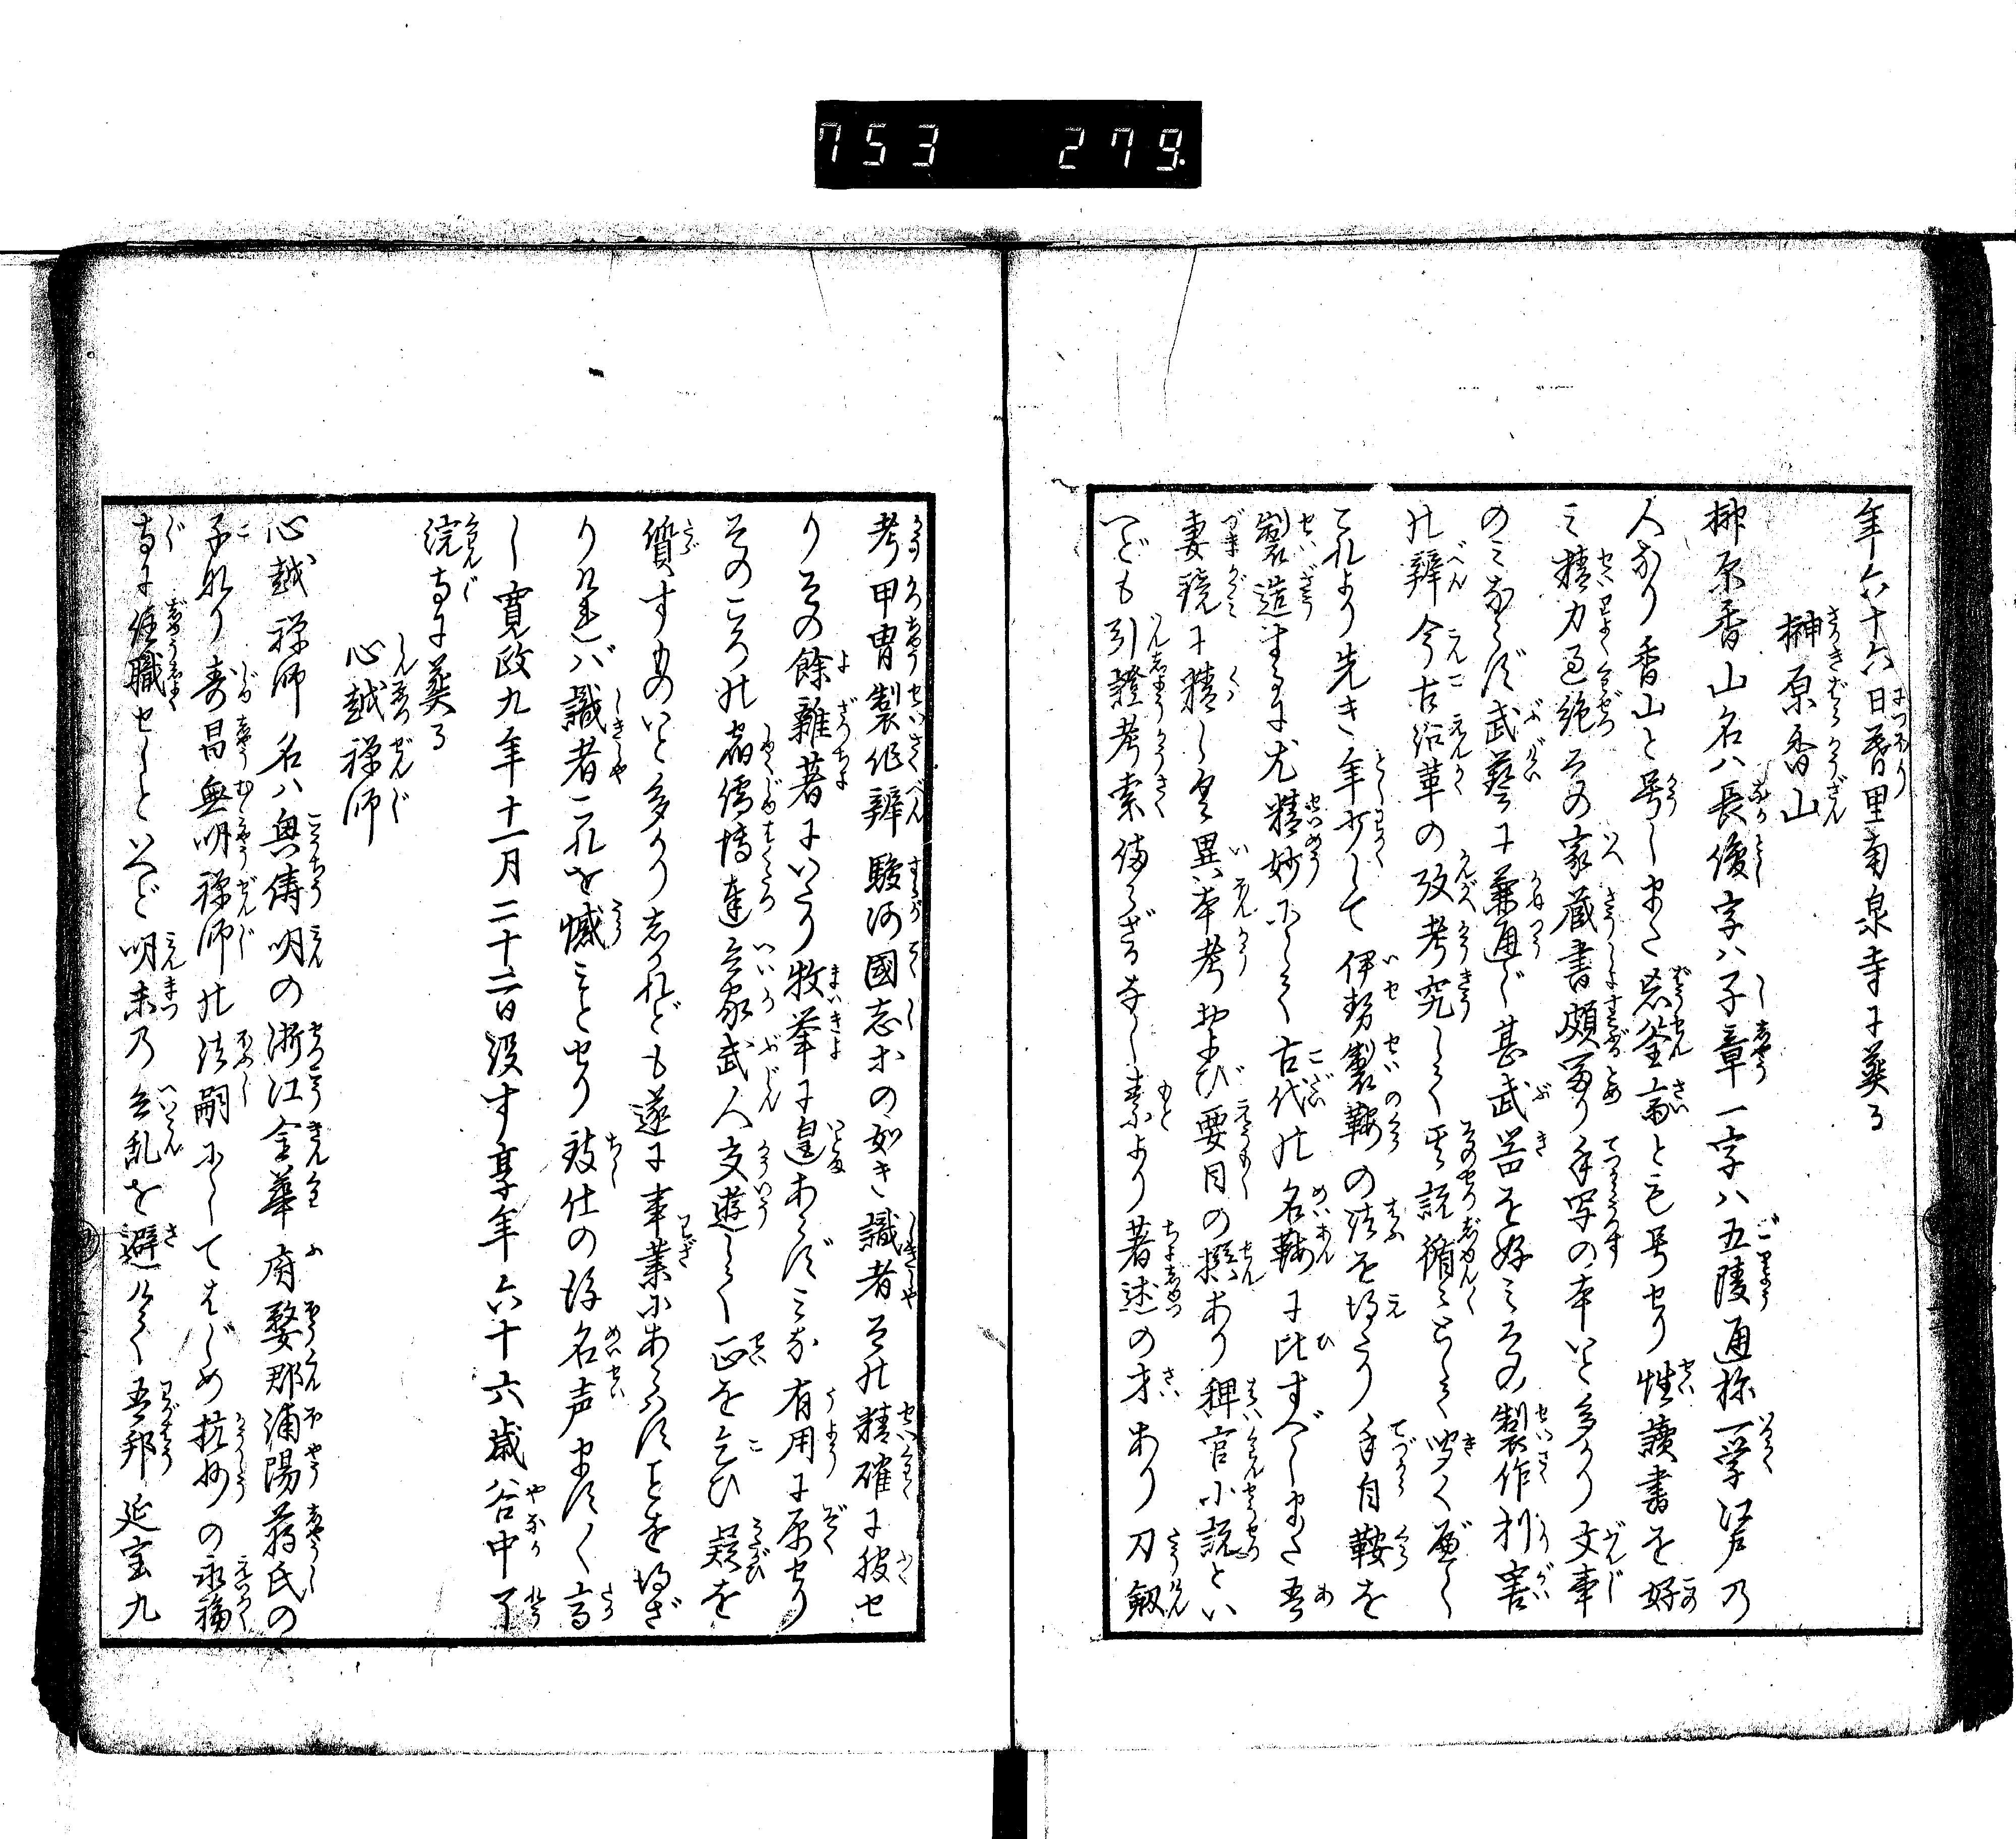 753 279.
年六十六日暮里南泉寺に葬る
榊原香山
榊原香山名ハ長俊字ハ子章一字ハ五陵通称一学江戸の
人なり香山と号しまた忘筌斎とも号せり性讀書を好
み精力過絶その家蔵書頗富り手写の本いと多かり文事
のミならず武藝に兼通じ甚武器を好ミその製作利害
の辨今古沿革の攷考究して其説循〻として聞く厭し
これより先き年少して伊勢製鞍の法を得たり手自鞍を
製造するに尤精妙にして古代の名鞍に比すべしまた吾
妻鏡に精し異本考および要目の撰あり稗官小説とい
へども引證考索備らざるなし素より著述の才あり刀劔
考甲冑製作辨駿河國志等の如き識者その精確に服せ
りその餘雑著にいたり枚挙に遑あらずミな有用に属せり
そのころの宿儒博達兵家武人交遊して正を乞ひ疑を
質すものいと多かりしかれども遂に事業にあらはすことを得ざ
りけれバ識者これを憾ことせり致仕の後名声ますく高
し寛政九年十一月二十二日没す享年六十六歳谷中了
浣寺に葬る
心越禅師
心越禅師名ハ興儔明の浙江金華府婺郡浦陽蒋氏の
子なり寿昌無明禅師の法嗣にしてはじめ杭州の永福
寺に住職せしといへど明末の兵乱を避けて吾邦延宝九